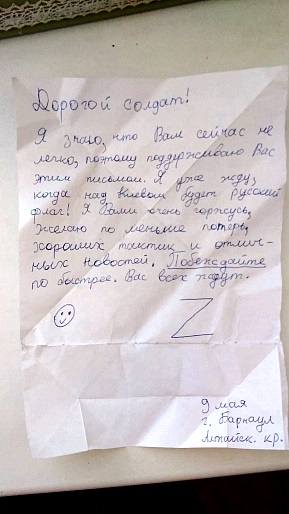 Дорогой солдат!
Я знаю, что Вам сейчас не
легко, поэтому поддерживаю Вас
этим письмом. Я уже жду,
когда над Киевом будет русский
флаг! Я Вами очень горжусь,
желаю по меньше потерь,
хороших тактик и отлич-
ных новостей. Побеждайте
по быстрее. Вас всех ждут.
Z
9 мая
г. Барнаул
Алтайск. кр.